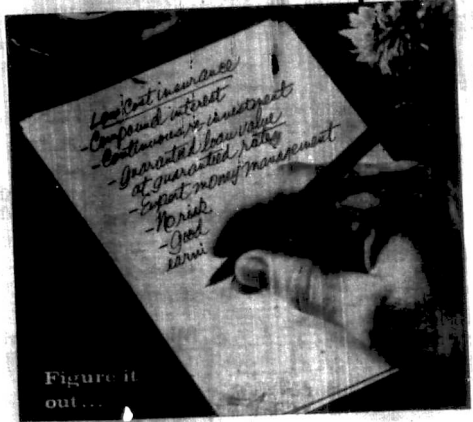 Low Cost insurance
- Compound interest
- Continuous re-investment
- guaranteed loan value
at guaranteed rate
- Expert money management
- No risk
- Good
earni
Figure it
out...